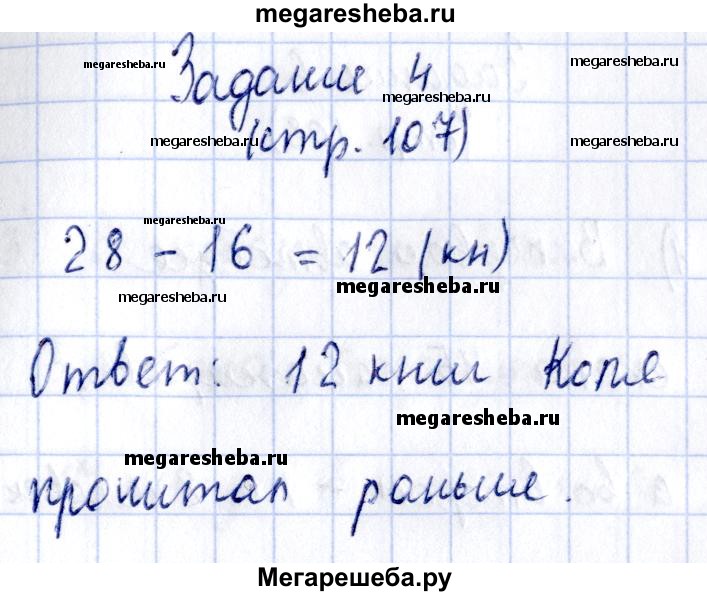 megaresheba.ru
megaresheba.ru
Задание 4
megaresheba.ru
megaresheba.ru
megaresheba.ru
(стр. 107)
megaresheba.ru
megaresheba.ru
28 - 16 = 12 (кн)
megaresheba.ru
megaresheba.ru
Ответ: 12 книг Коля
megaresheba.ru
megaresheba.ru
прочитал раньше.
Мегарешеба.ру